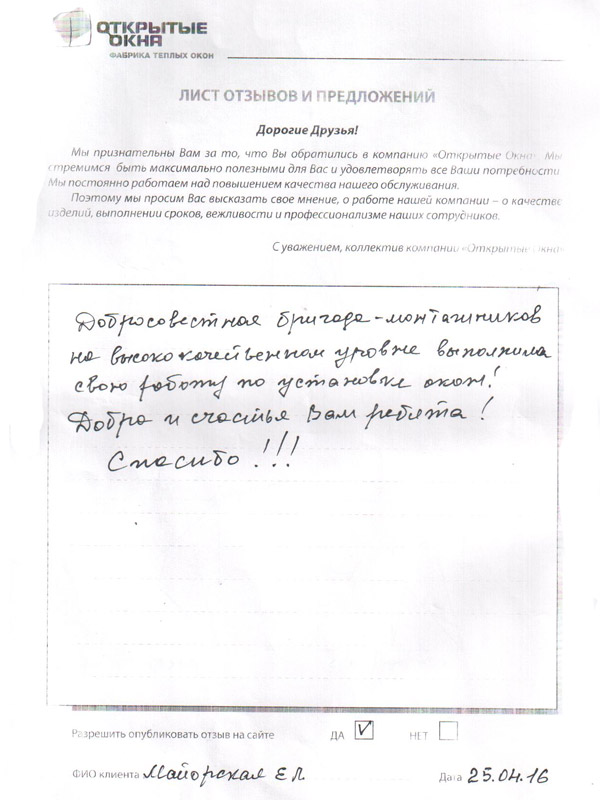 ОТКРЫТЫЕ
ОКНА
ФАБРИКА ТЕПЛЫХ ОКОН
ЛИСТ ОТЗЫВОВ И ПРЕДЛОЖЕНИЙ
Дорогие Друзья!
Мы признательны Вам за то, что Вы обратились в компанию «Открытые Окна». Мы
стремимся быть максимально полезными для Вас и удовлетворять все Ваши потребности.
Мы постоянно работаем над повышением качества нашего обслуживания.
Поэтому мы просим Вас высказать свое мнение, о работе нашей компании – о качестве
изделий, выполнении сроков, вежливости и профессионализме наших сотрудников.
С уважением, коллектив компании «Открытые Окна»
Добросовестная бригада-монтажников
на высококачественном уровне выполнила
свою работу по установке окон!
Добра и счастья Вам ребята!
Спасибо!!!
Разрешить опубликовать отзыв на сайте ДА НЕТ
ФИО клиента Майорская Е Л Дата 25.04.16